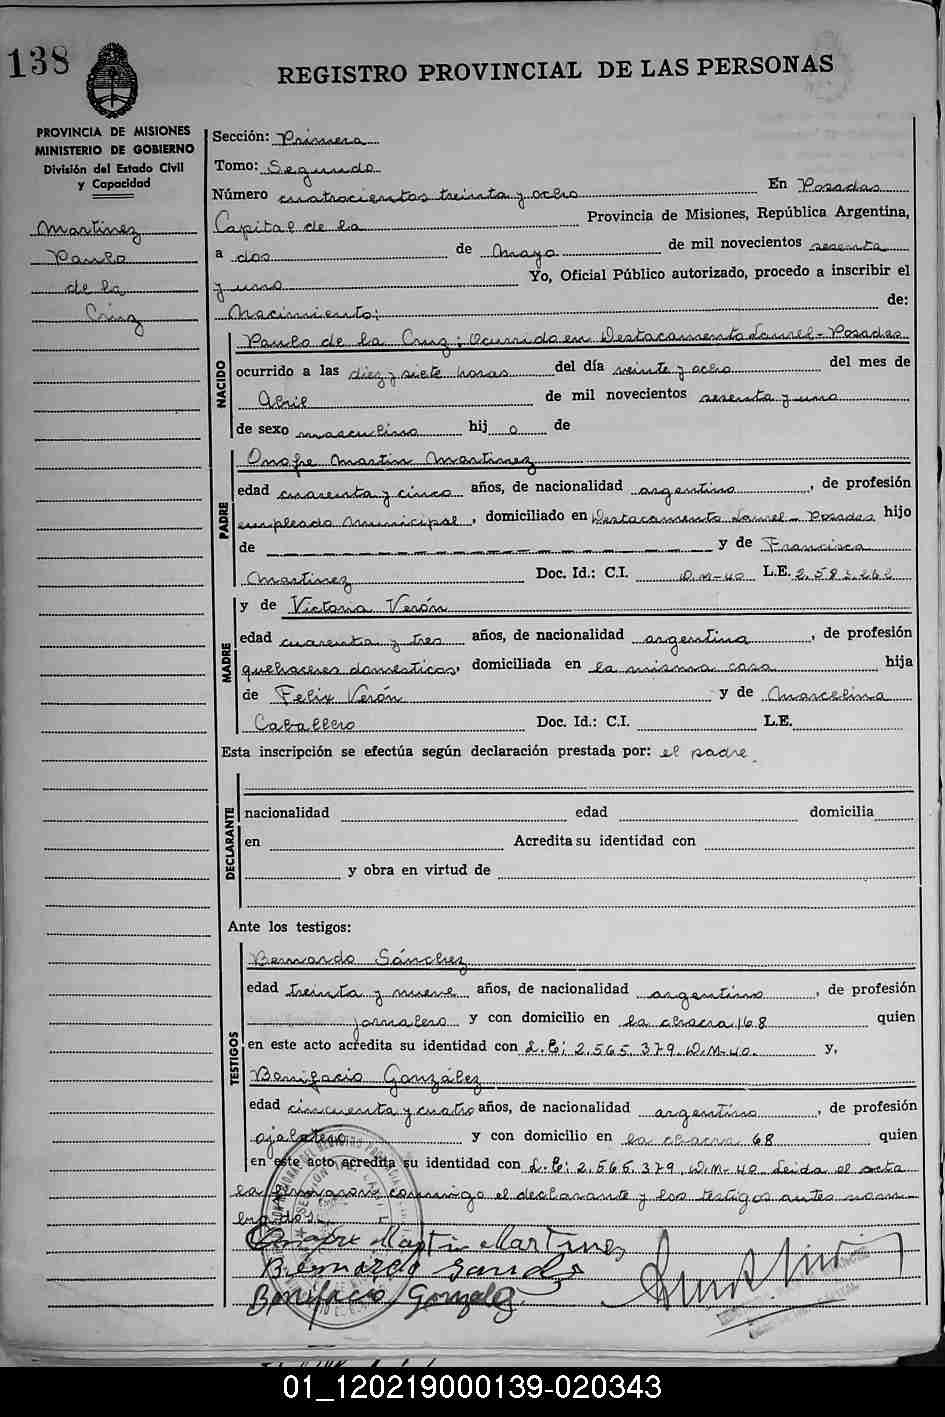 138
REGISTRO PROVINCIAL DE LAS PERSONAS
PROVINCIA DE MISIONES
MINISTERIO DE GOBIERNO
División del Estado Civil
y Capacidad
Martinez
Paulo
de la
Cruz
Sección: Primera
Tomo: Segundo
Número cuatrocientos treinta y ocho En Posadas
Capital de la Provincia de Misiones, República Argentina,
a dos de Mayo de mil novecientos sesenta
y uno Yo, Oficial Público autorizado, procedo a inscribir el
Nacimiento: de:
NACIDO
Paulo de la Cruz; Ocurrido en Destacamento Laurel - Posadas
ocurrido a las diez y siete horas del día veinte y ocho del mes de
Abril de mil novecientos sesenta y uno
de sexo masculino hij o de
PADRE
Onofre Martin Martinez
edad cuarenta y cinco años, de nacionalidad argentino, de profesión
empleado Municipal, domiciliado en Destacamento Laurel - Posadas hijo
de y de Francisca
Martinez Doc. Id.: C.I. D.M-40 L.E. 2.583.262
MADRE
y de Victoria Verón
edad cuarenta y tres años, de nacionalidad argentina, de profesión
quehaceres domesticos, domiciliada en la misma casa hija
de Felix Verón y de Marcelina
Caballero Doc. Id.: C.I. L.E.
Esta inscripción se efectúa según declaración prestada por: el padre.
DECLARANTE
nacionalidad edad domicilia
en Acredita su identidad con
y obra en virtud de
Ante los testigos:
TESTIGOS
Bernardo Sánchez
edad treinta y nueve años, de nacionalidad argentino, de profesión
jornalero y con domicilio en la chacra 168 quien
en este acto acredita su identidad con L.E; 2.565.379.D.M-40. y,
Bonifacio González
edad cincuenta y cuatro años, de nacionalidad argentino, de profesión
ojalatero y con domicilio en la chacra 68 quien
en este acto acredita su identidad con L.E; 2.565.379.D.M-40 Leida el acta
la firmaron conmigo el declarante y los testigos antes nom-
brados.
Onofre Martin Martinez
Bernardo
Bonifacio Gonzalez
01_120219000139-020343